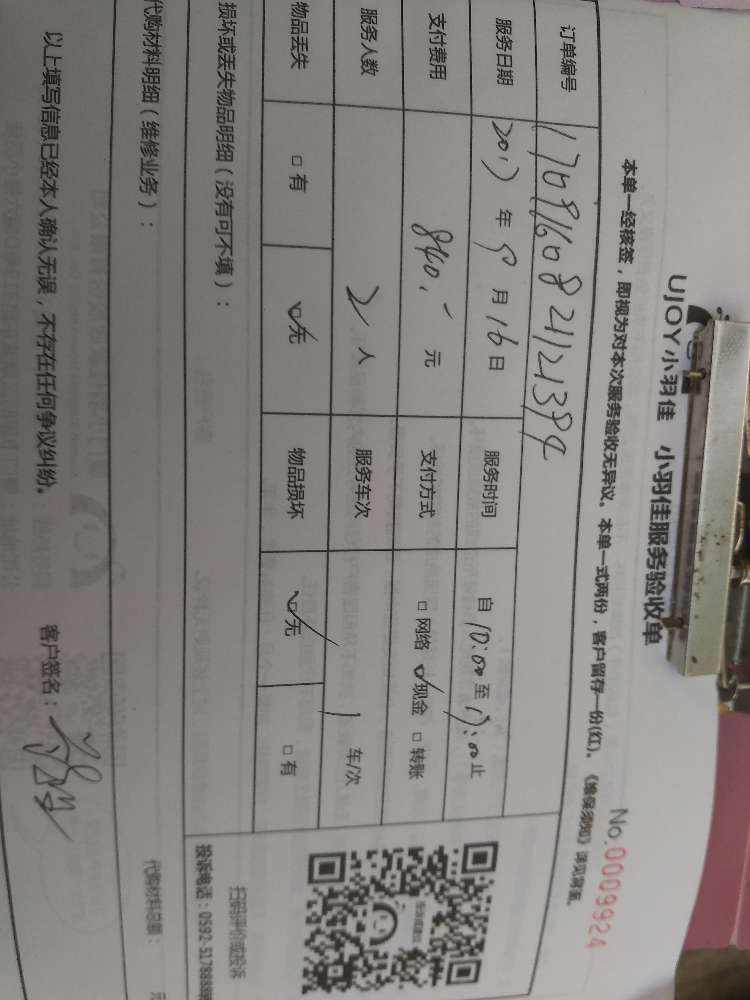 UJOY小羽佳 小羽佳服务验收单
No.0009924
本单一经核签，即视为对本次服务验收无异议。本单一式两份，客户留存一份(红)。《维保须知》详见背面。
订单编号 1709160821121394
服务日期 2017年9月16日 服务时间 自10:00至17:00止
支付费用 840.- 元 支付方式 □网络 ☑现金 □转账
服务人数 2人 服务车次 1车/次
物品丢失 □有 ☑无 物品损坏 ☑无 □有
损坏或丢失物品明细（没有可不填）：
扫码评价或投诉
投诉电话：0592-5178888
代购材料明细（维修业务）：
代购材料总额： 元
以上填写信息已经本人确认无误，不存在任何争议纠纷。 客户签名：